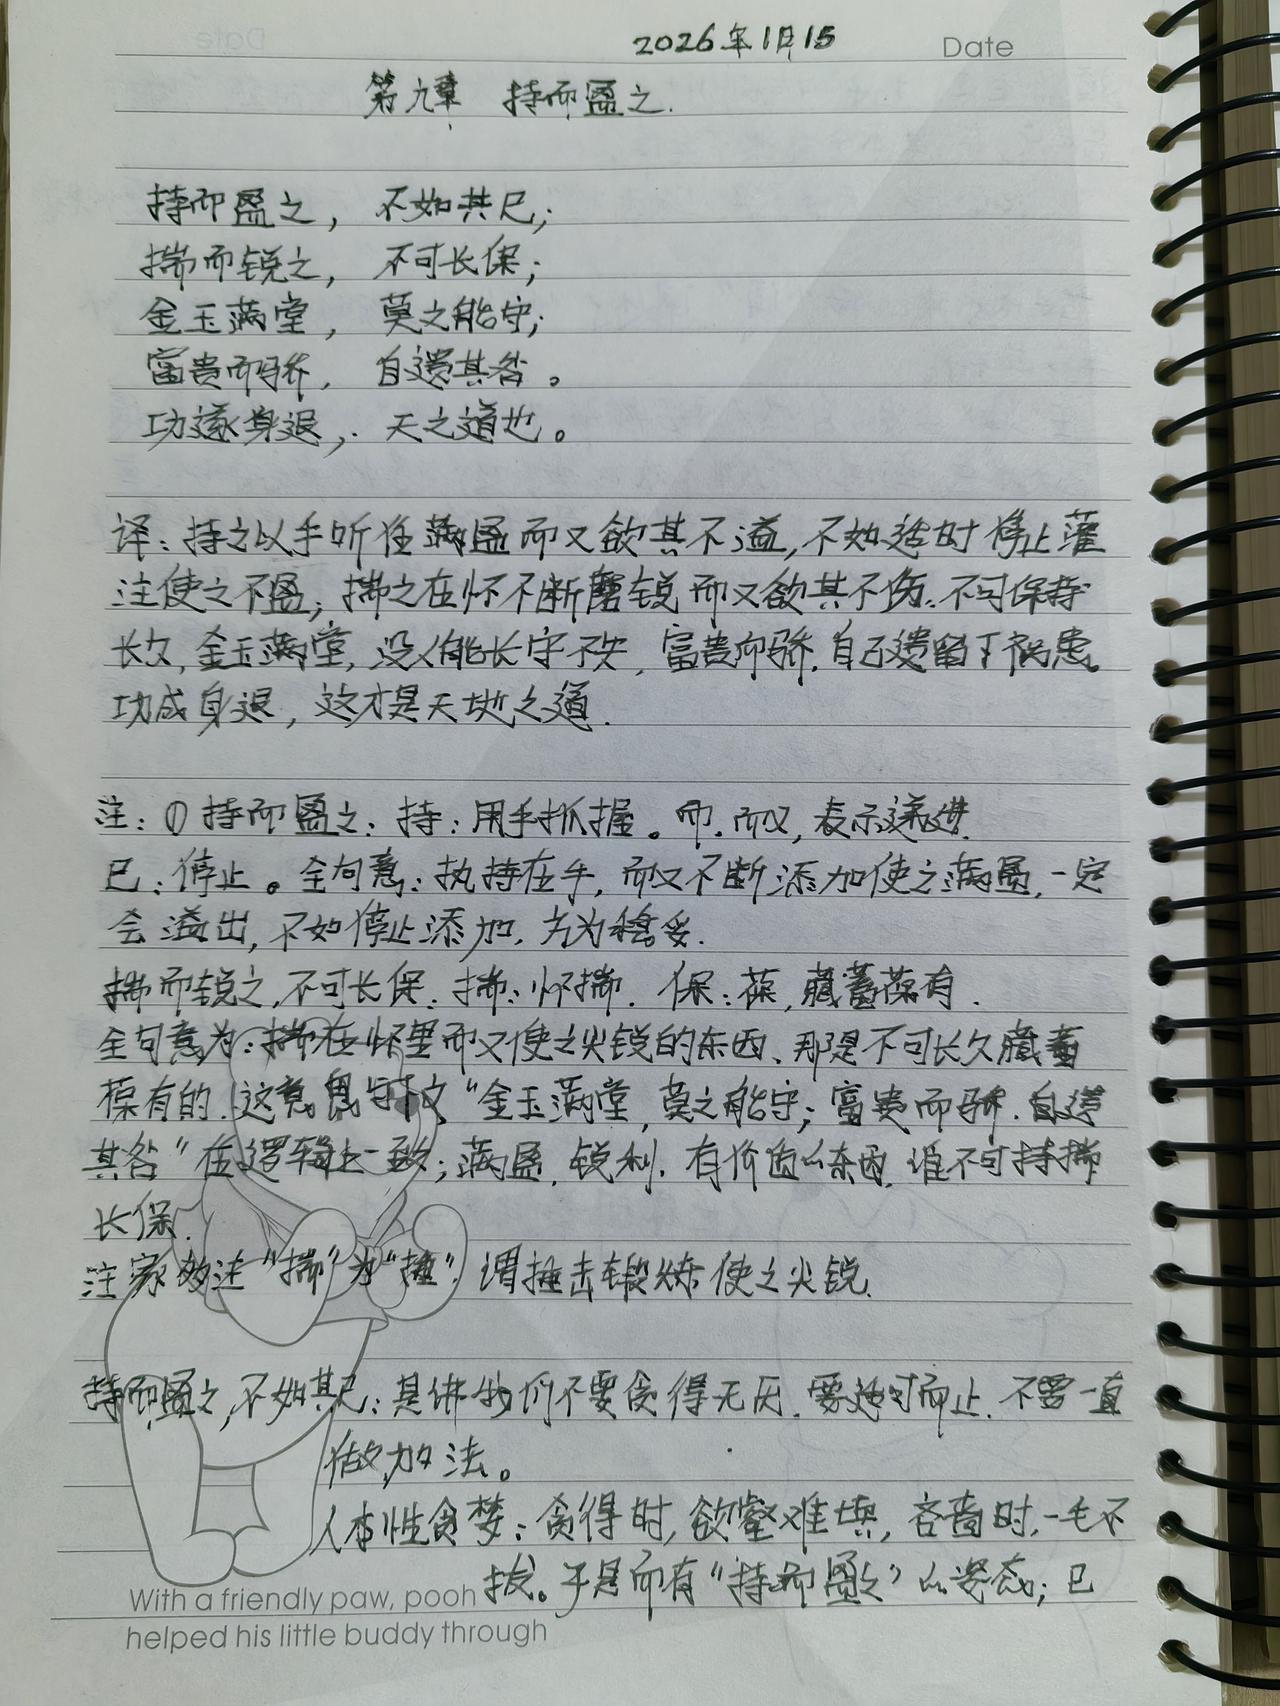 2026年1月15 Date
第九章 持而盈之.
持而盈之, 不如其已;
揣而锐之, 不可长保;
金玉满堂, 莫之能守;
富贵而骄, 自遗其咎。
功遂身退, 天之道也。
译:持之以手听任满盈而又欲其不溢,不如适时停止灌
注使之不盈;揣之在怀不断磨锐而又欲其不伤.不可保持
长久,金玉满堂,没人能长守不失,富贵而骄.自己遗留下祸患.
功成身退,这才是天地之道.
注:①持而盈之:持:用手抓握。而.而又,表示递进.
已:停止。全句意:执持在手,而又不断添加使之满盈,一定
会溢出,不如停止添加,方为稳妥.
揣而锐之,不可长保.揣:怀揣. 保:葆,藏蓄葆有.
全句意为:揣在怀里而又使之尖锐的东西、那是不可长久藏蓄
葆有的.这意思与下文“金玉满堂,莫之能守;富贵而骄.自遗
其咎”在逻辑上一致;满盈,锐利.有价值的东西,谁不可持揣
长保.
注家多注“揣”为“捶”.谓捶击锻炼使之尖锐.
持而盈之,不如其已:是讲我们不要贪得无厌.要适可而止.不要一直
做加法。
人本性贪婪:贪得时,欲壑难填,吝啬时,一毛不
拔。于是而有“持而盈之”的姿态;已
With a friendly paw, pooh
helped his little buddy through